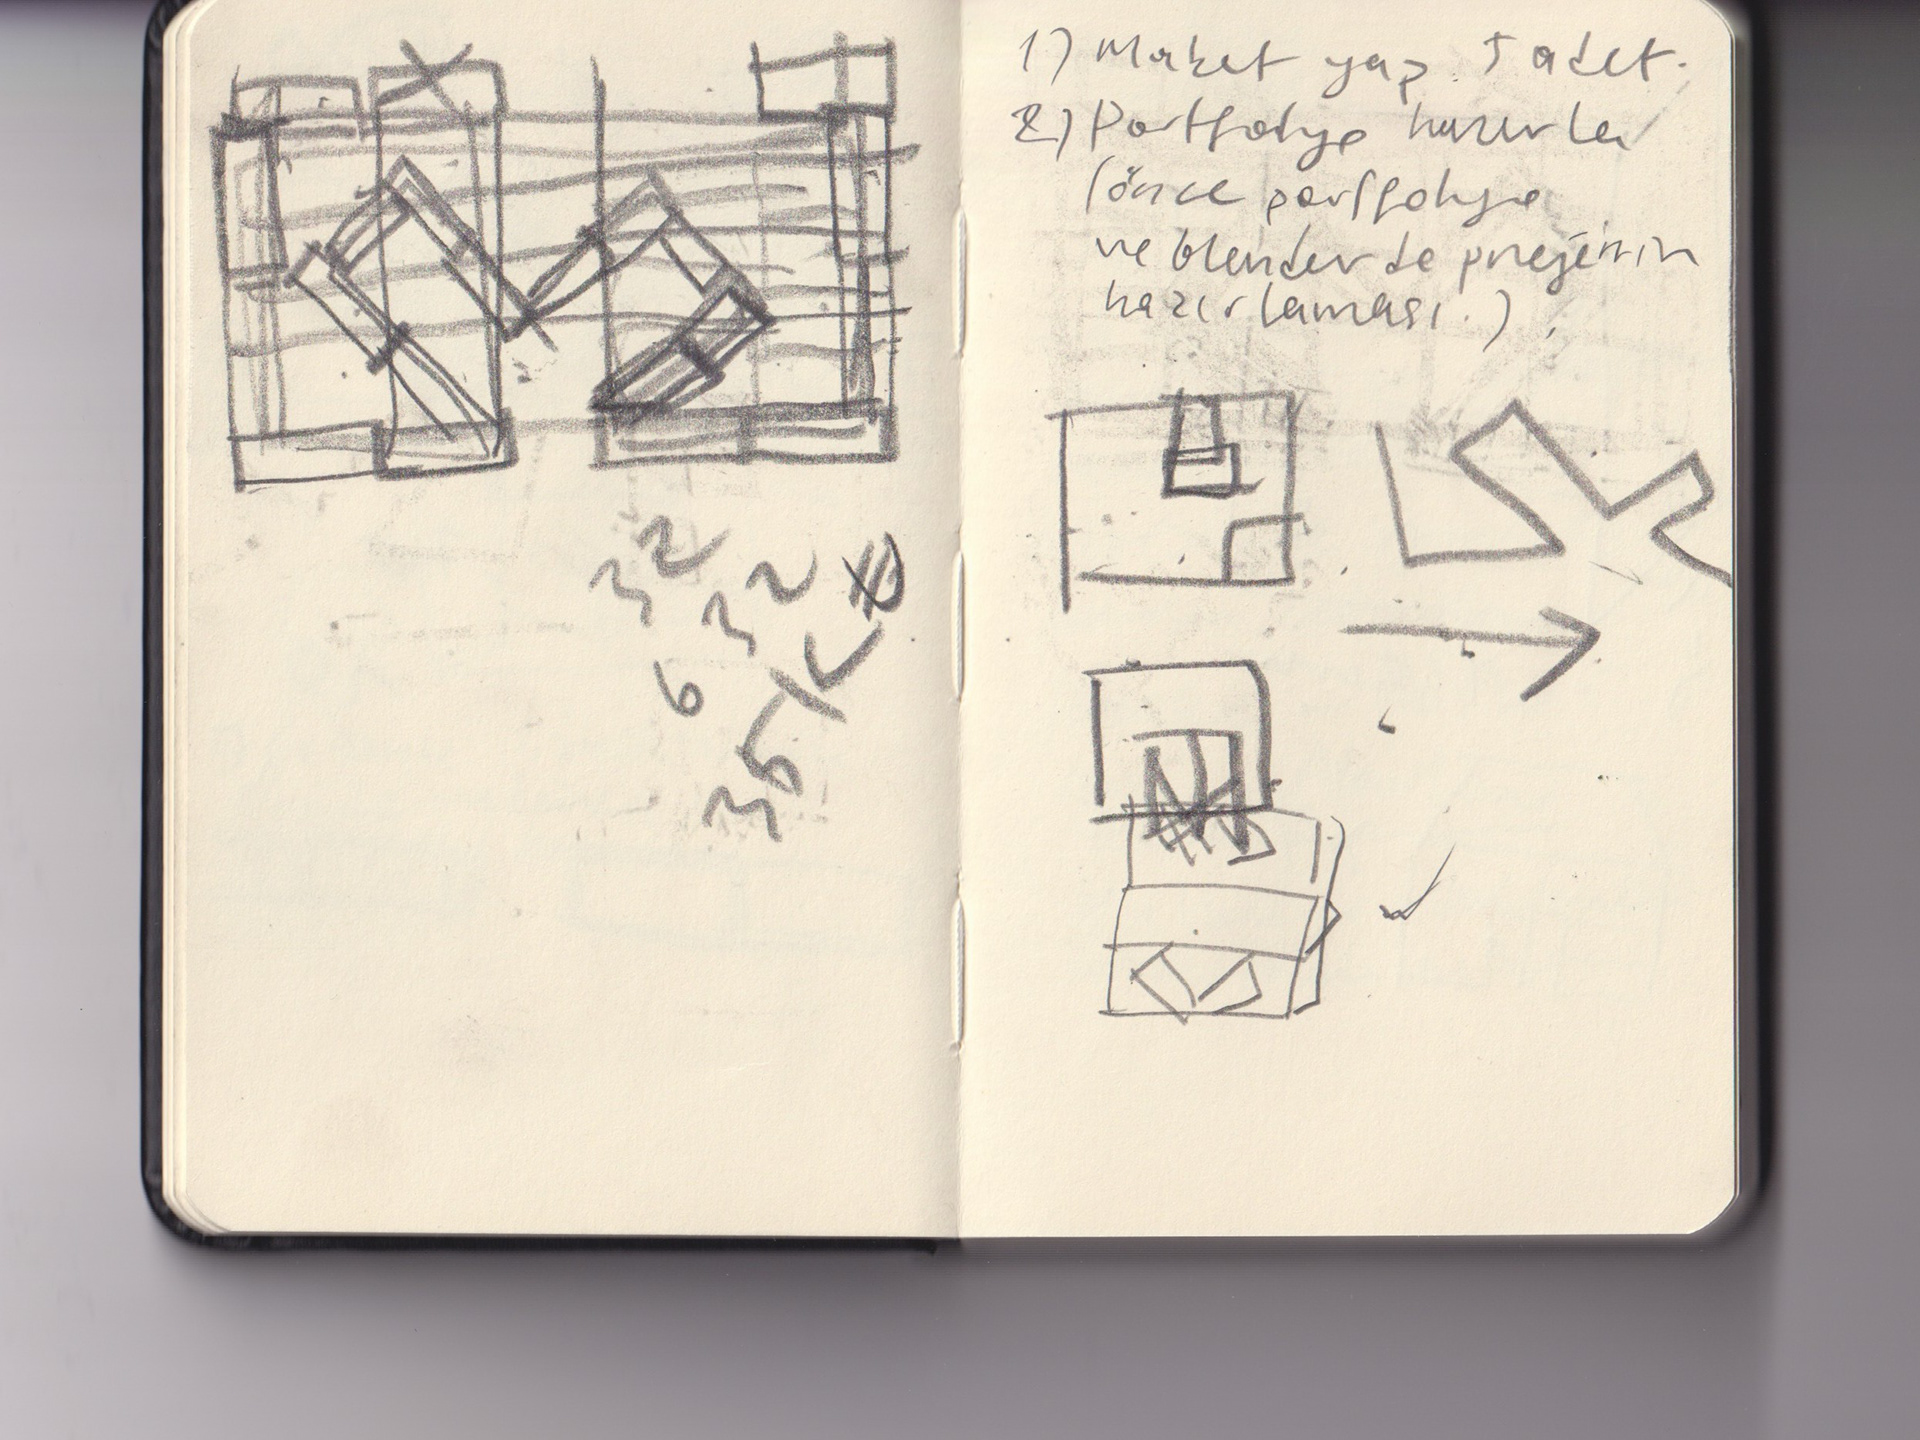 32
32
6
35
1) Maket yap. 5 adet.
2) Portfolyo hazırla
(önce portfolyo
ve blenderde projenin
hazırlaması.).